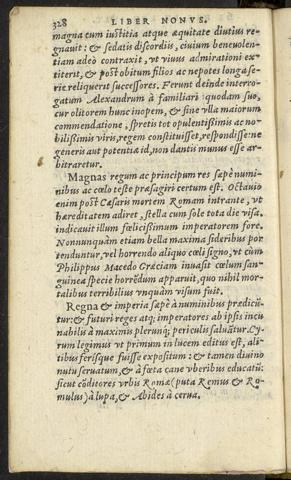 328 LIBER NONVS.
magna cum iustitia atque æquitate diutius re-
gnauit: & sedatis discordiis, ciuium beneuolen-
tiam adeò contraxit, vt viuus admirationi ex-
titerit, & post obitum filios ac nepotes longa se-
rie reliquerit successores. Ferunt deinde interro-
gatum Alexandrum à familiari quodam suo,
cur olitorem hunc inopem, & sine vlla maiorum
commendatione, spretis tot opulentissimis ac no-
bilissimis viris, regem constituisset, respondisse: ne
generis aut potentiæ id, non dantis munus esse ar-
bitraretur.
Magnas regum ac principum res sæpè numi-
nibus ac cœlo teste præsagiri certum est. Octauio
enim post Cæsaris mortem Romam intrante, vt
hæreditatem adiret, stella cum sole tota die visa,
indicauit illum fœlicißimum imperatorem fore.
Nonnunquàm etiam bella maxima sideribus por
tenduntur, vel horrendo aliquo cœli signo, vt cùm
Philippus Macedo Græciam inuasit cœlum san-
guinea specie horrēdum apparuit, quo nihil mor-
talibus terribilius vnquàm visum fuit.
Regna & imperia sæpè à numinibus prædicū
tur: & futuri reges atq; imperatores ab ipsis incu
nabilis à maximis plerunq; periculis saluātur. Cy-
rum legimus vt primùm in lucem editus est, ali-
tibus ferísque fuisse expositum: & tamen diuino
nutu seruatum, & à fœta cane vberibus educatū:
sicut cōditores vrbis Romæ (puta Remus & Ro-
mulus) à lupa, & Abides à cerua.